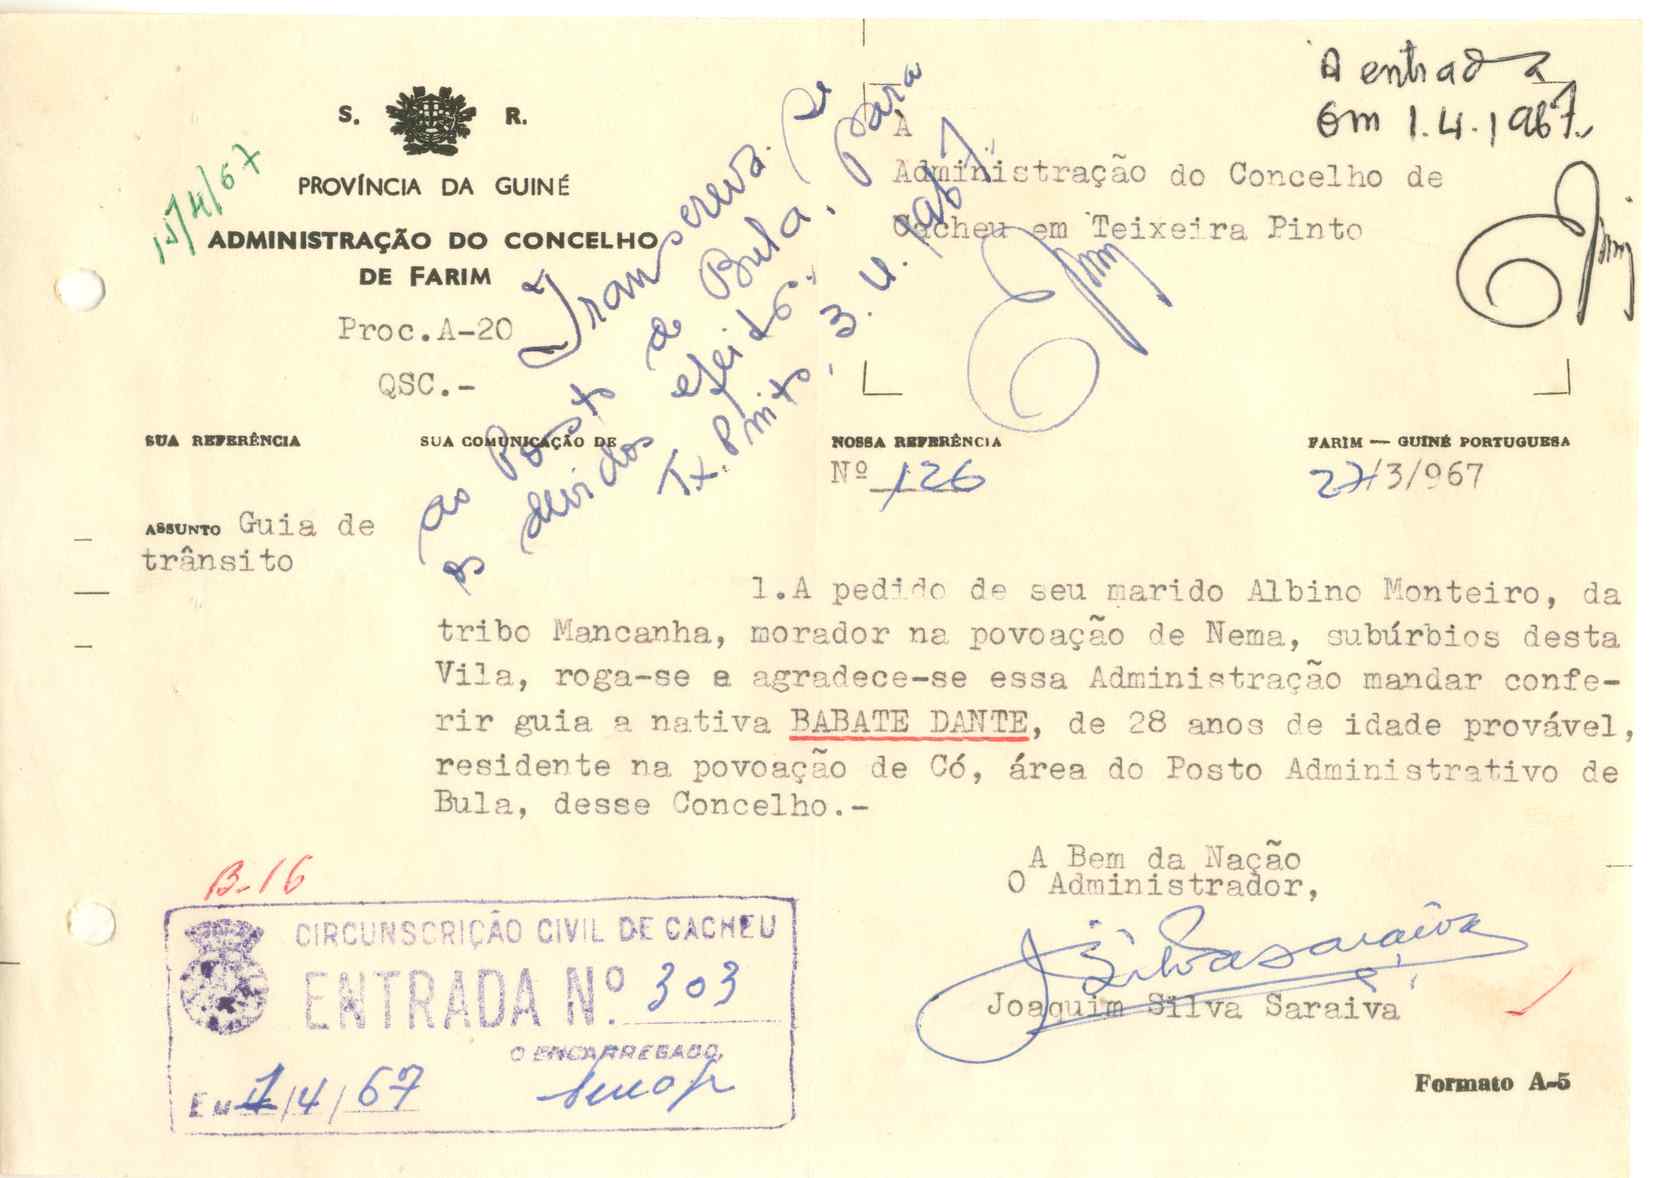 S. R.
PROVÍNCIA DA GUINÉ
ADMINISTRAÇÃO DO CONCELHO
DE FARIM
Proc.A-20
QSC.-
À
Administração do Concelho de
Cacheu em Teixeira Pinto
A entrada
em 1.4.1967.
Transcreva-se
ao Posto de Bula, para
os devidos efeitos.
Tx. Pinto, 3.4.1967
SUA REFERÊNCIA
SUA COMUNICAÇÃO DE
NOSSA REFERÊNCIA
Nº 126
FARIM — GUINÉ PORTUGUESA
27/3/967
ASSUNTO Guia de
trânsito
1.A pedido de seu marido Albino Monteiro, da
tribo Mancanha, morador na povoação de Nema, subúrbios desta
Vila, roga-se e agradece-se essa Administração mandar confe-
rir guia a nativa BABATE DANTE, de 28 anos de idade provável,
residente na povoação de Có, área do Posto Administrativo de
Bula, desse Concelho.-
A Bem da Nação
O Administrador,
JSilvaSaraiva
Joaquim Silva Saraiva
B-16
CIRCUNSCRIÇÃO CIVIL DE CACHEU
ENTRADA Nº. 303
O ENCARREGADO,
Em 1/4/67
Formato A-5